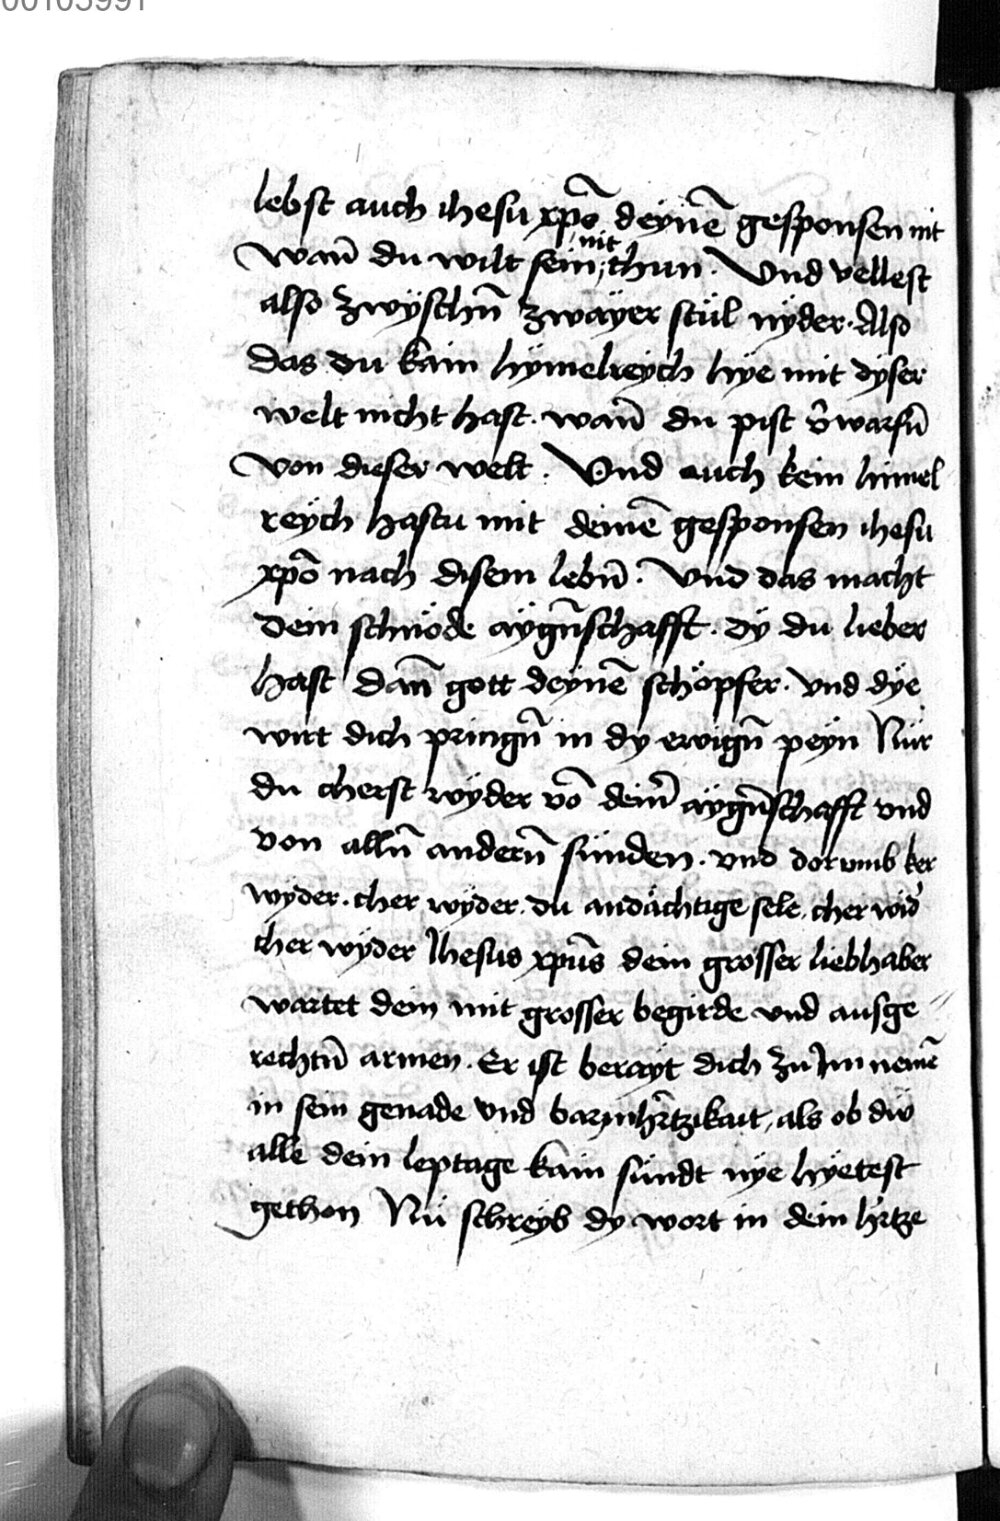 00103991
lebst auch ihesu xpō deynē gesponsen nit
wan̄ du wilt sein nit thun. Und vellest
also zwyschn̄ zwayer stül nyder. Also
das du kain hymelreych hye mit dyser
welt nicht hast. wan̄ du pist v̄warfn̄
von dieser welt. Und auch kein himel
reych hastu mit deinē gesponsen ihesu
xpō nach disem lebn̄. Und das macht
dein schnöde aygn̄schafft. dy du lieber
hast dan̄ gott deynē schöpfer. und dye
wirt dich pringn̄ in dy ewign̄ peyn Nur
du cherst wyder vō dein̄ aygn̄schafft und
von alln̄ andern̄ sünden. und dorumb ker
wyder. cher wyder. du andächtige sele. cher wid̕
cher wyder Ihesus xpūs dein grosser liebhaber
wartet dein mit grosser begirde und ausge
rechtn̄ armen. Er ist berayt dich zu Im nemē
in sein genade und barmh̄rtzikait, als ob dw
alle dein leptage kain sündt nye hyetest
gethon Nu schreyb dy wort in dein h̄rtze